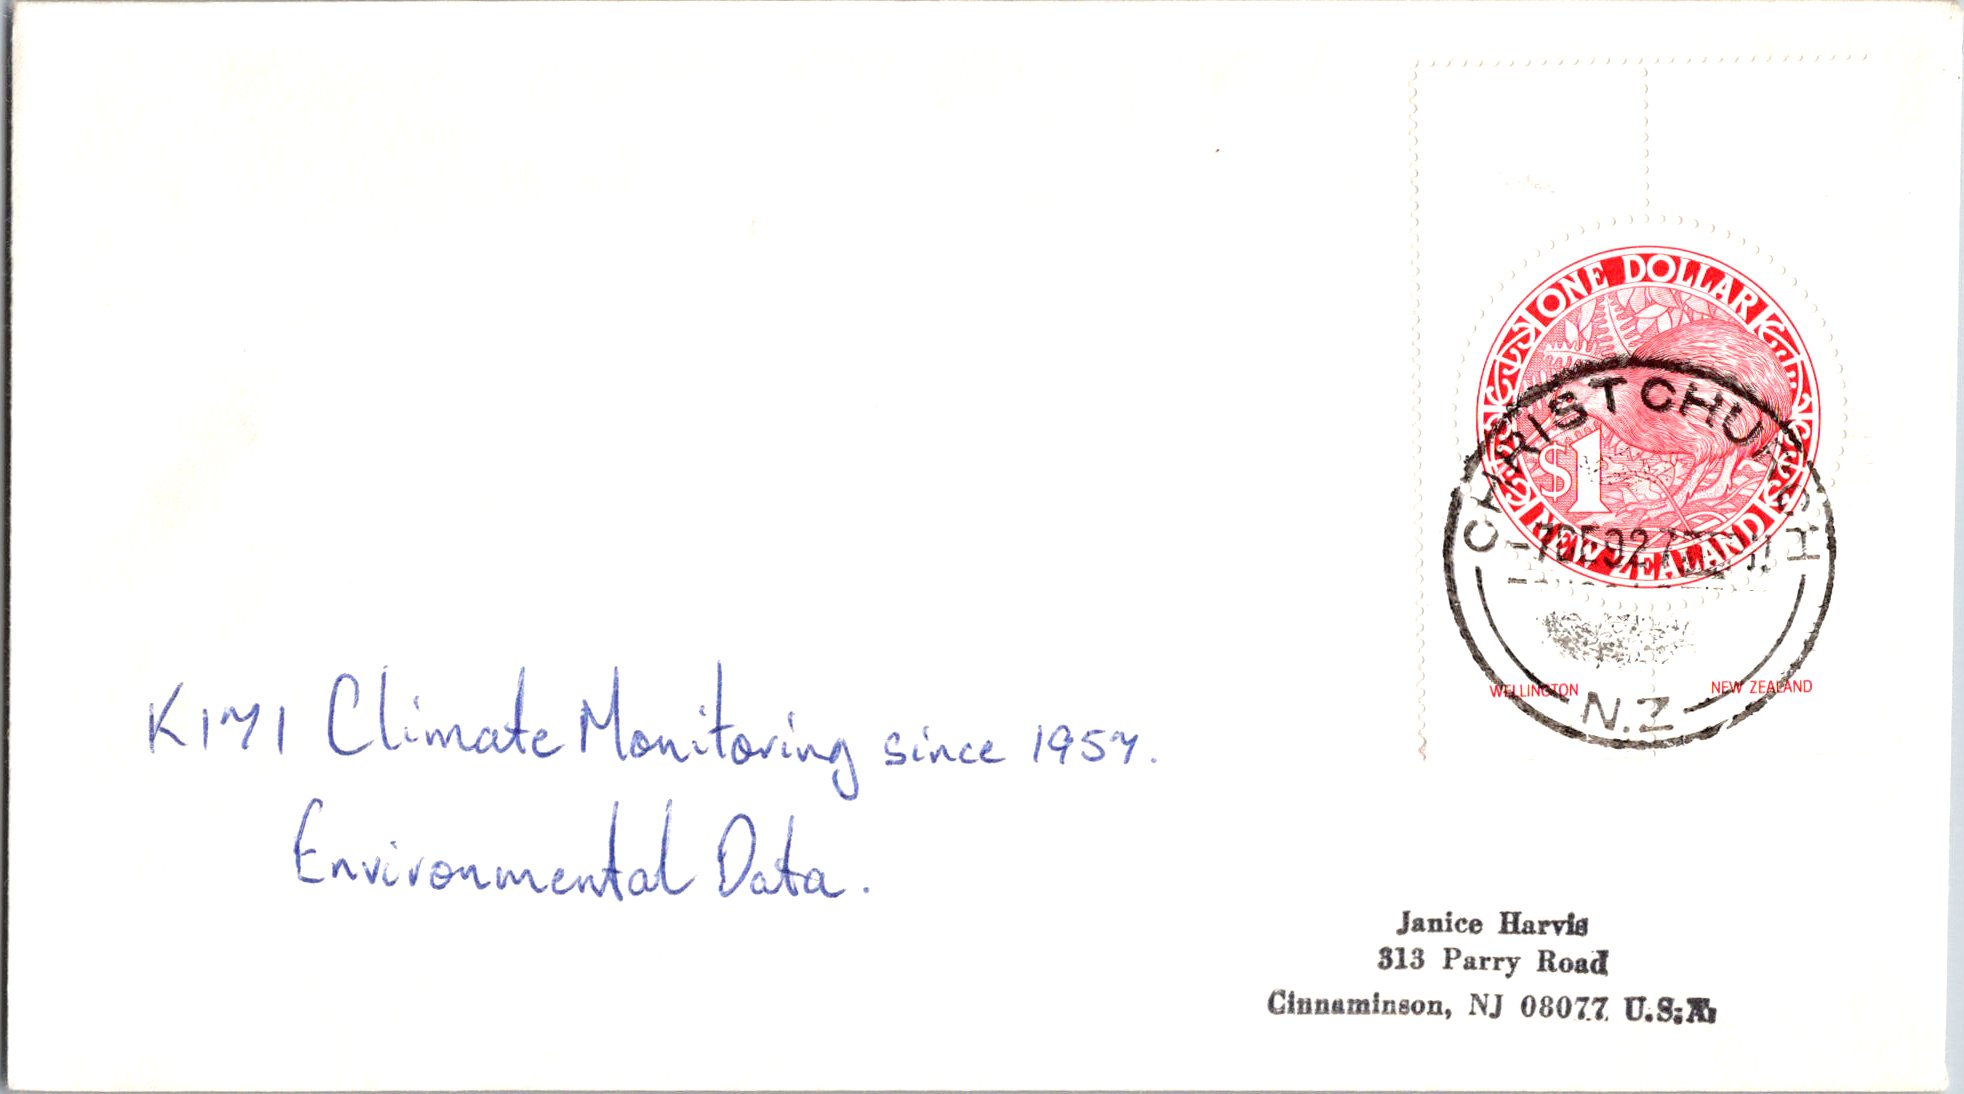 ONE DOLLAR
$1
NEW ZEALAND
CHRISTCHURCH
N.Z.
WELLINGTON NEW ZEALAND
K171 Climate Monitoring since 1957.
Environmental Data.
Janice Harvis
313 Parry Road
Cinnaminson, NJ 08077 U.S.A.